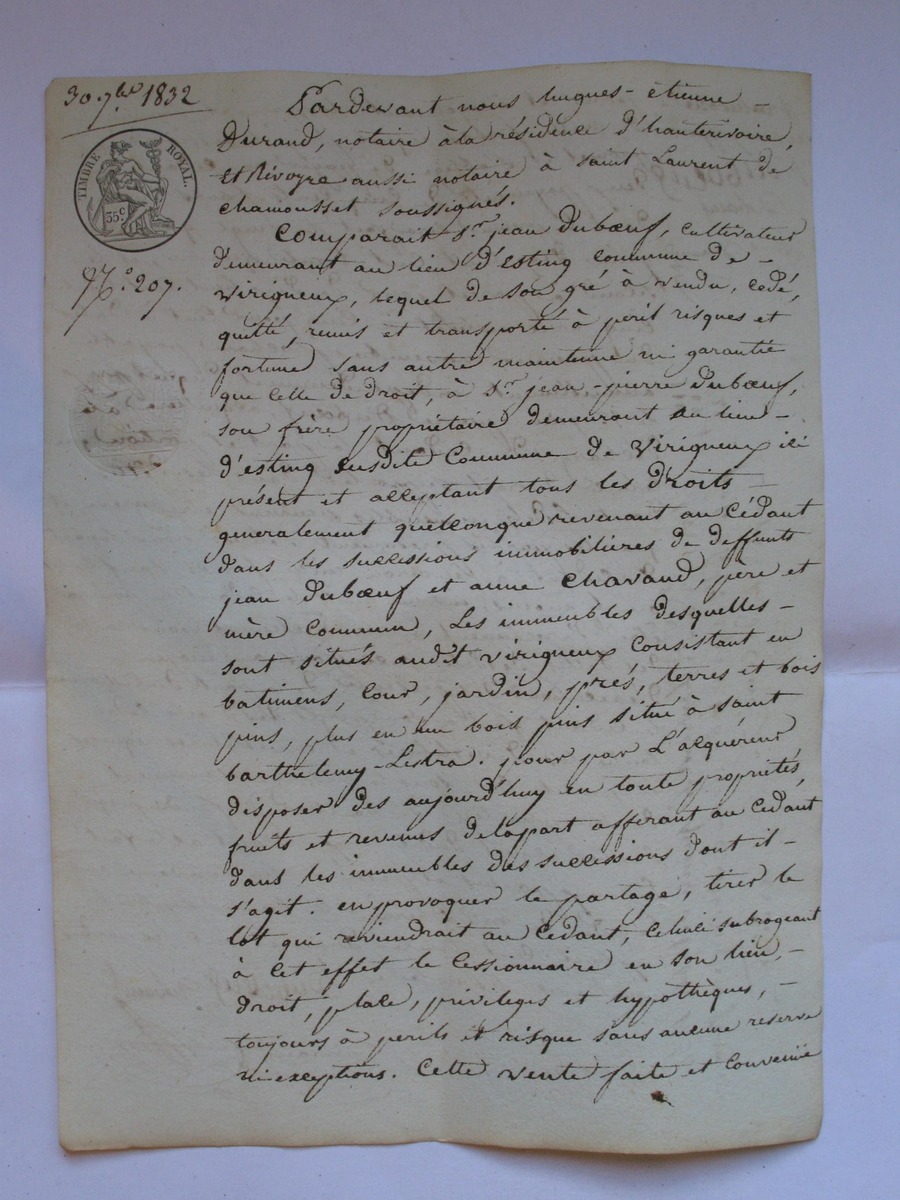 30 7bre 1832
TIMBRE ROYAL.
35c
No. 207.
Pardevant nous hugues-étienne
Durand, notaire à la résidence d'hauterivoire
et Rivoyre aussi notaire à saint Laurent de
chamousset soussignés.
Comparait Sr. jean Dubœuf, cultivateur
demeurant au lieu d'esting commune de
virigneux, lequel de son gré à vendu, cedé,
quitté, remis et transporté à peril risques et
fortune sans autre maintenue ni garantie
que celle de droit, à Sr. jean-pierre Dubœuf,
son frère propriétaire demeurant au lieu
d'esting susdite Commune de Virigneux ici
présent et acceptant tous les droits
generalement quelconque revenant au Cédant
dans les successions immobilières de deffunts
jean Dubœuf et anne Chavand, père et
mère commun, Les immeubles desquelles
sont situés audit virigneux consistant en
batimens, cour, jardin, prés, terres et bois
pins, plus en un bois pins situé à saint
barthelemy-Lestra. pour par L'acquéreur
disposer des aujourd'huy en toute propriétés,
fruits et revenus delapart afferant au Cédant
dans les immeubles des successions dont il
s'agit. en provoquer le partage, tirer le
lot qui reviendrait au Cedant, celuici subrogeant
à cet effet le cessionnaire en son lieu,
droit, place, privileges et hypothèques,
toujours à perils et risque sans aucune reserve
ni exceptions. Cette vente faite et convenue